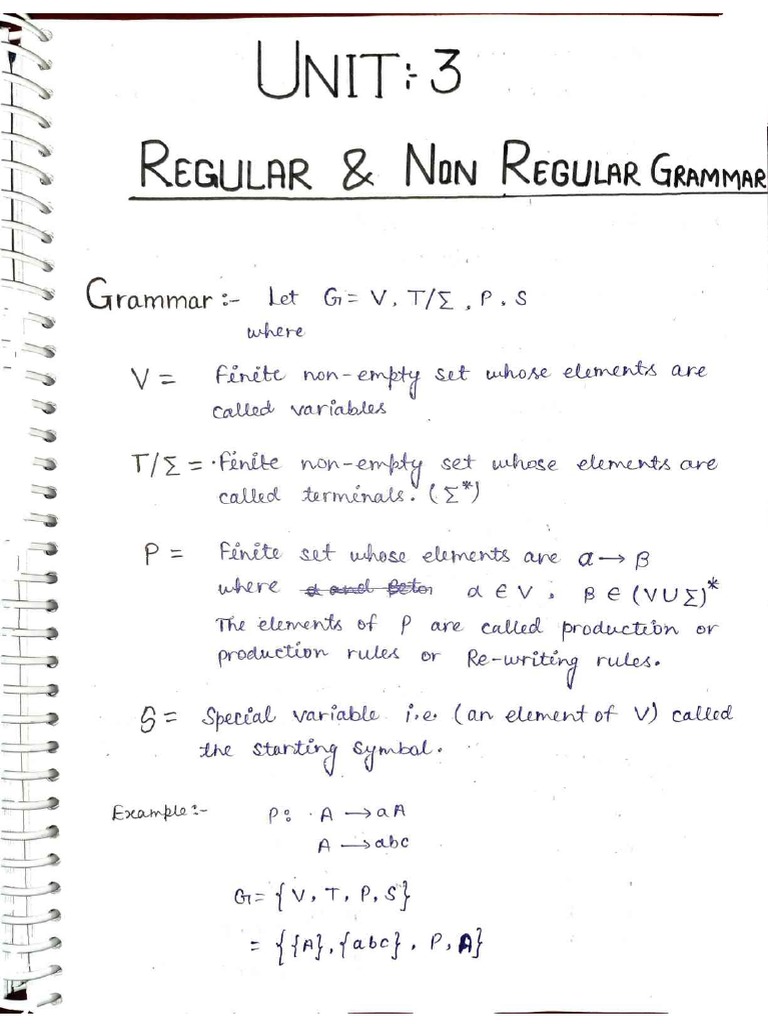 UNIT:- 3
REGULAR & NON REGULAR GRAMMAR
Grammar :- Let G = V, T/Σ, P, S
where
V = Finite non-empty set whose elements are
called variables
T/Σ = Finite non-empty set whose elements are
called terminals. (Σ*)
P = Finite set whose elements are α → β
where α and Beta α ∈ V, β ∈ (V U Σ)*
The elements of P are called production or
production rules or Re-writing rules.
S = Special variable i.e. (an element of V) called
the starting symbol.
Example:- P: A → aA
A → abc
G = {V, T, P, S}
= {{A}, {abc}, P, A}